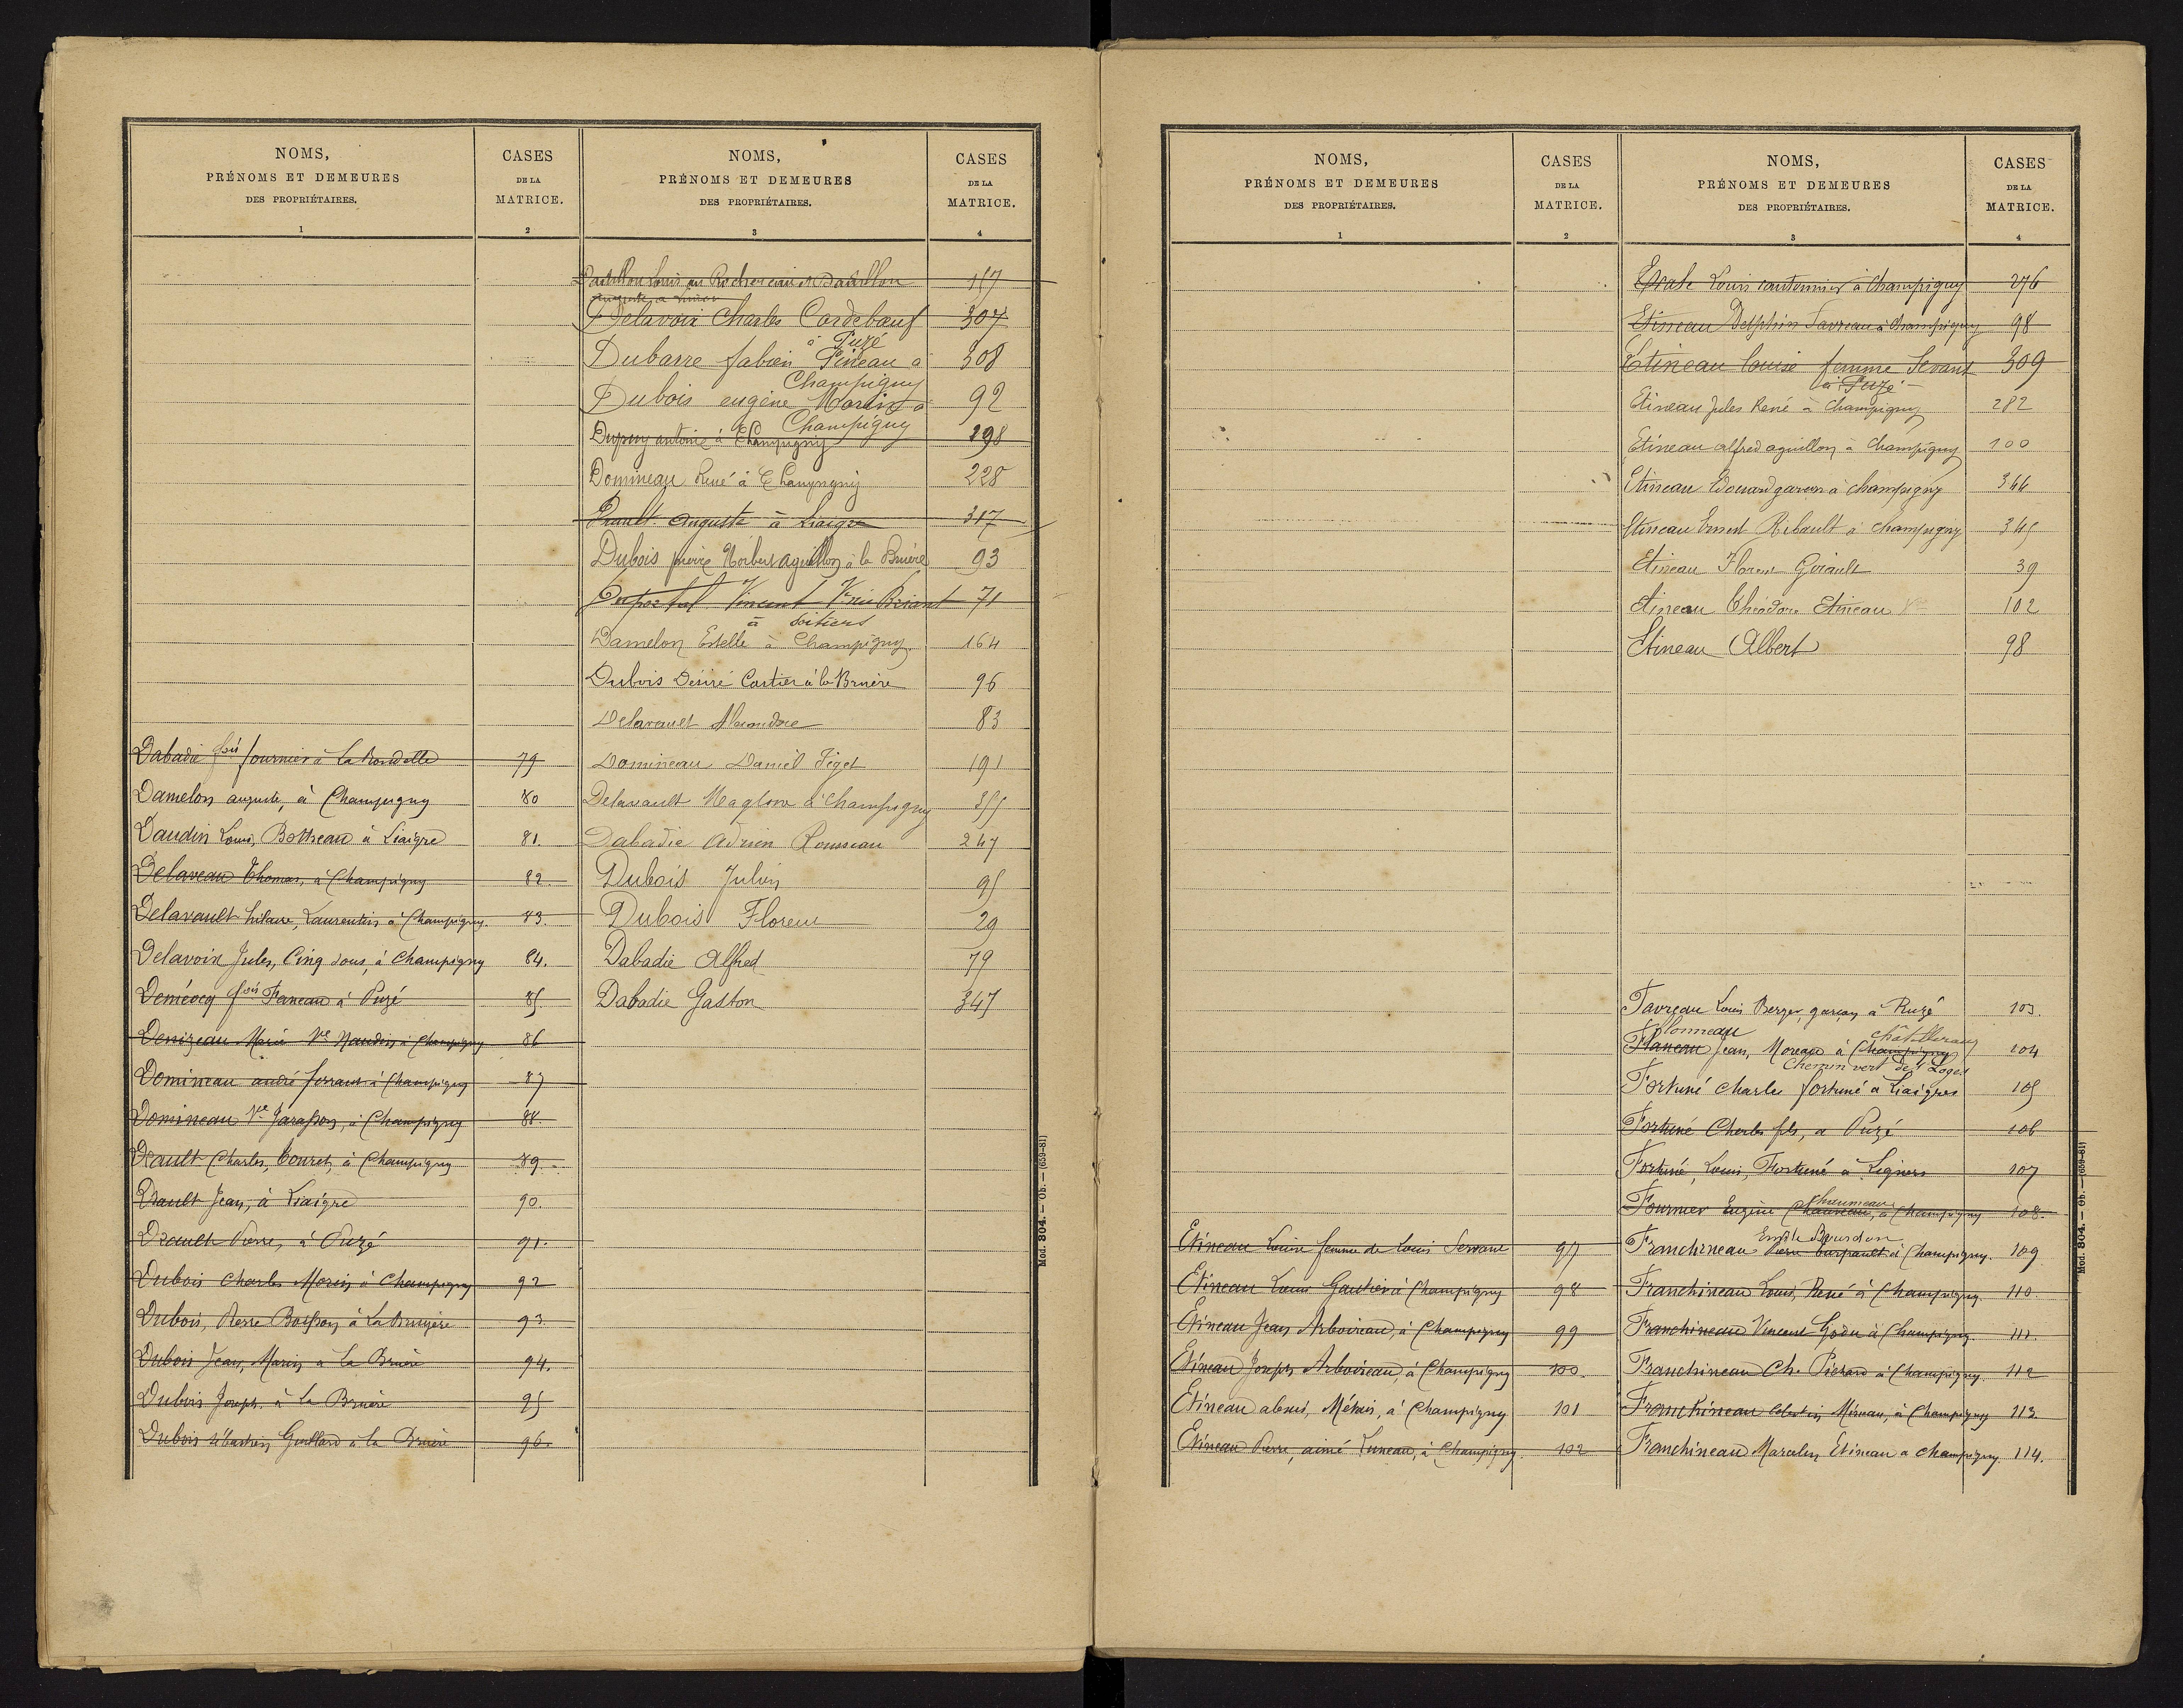 NOMS,
PRÉNOMS ET DEMEURES
DES PROPRIÉTAIRES.
1
CASES
DE LA
MATRICE.
2
Dabadie fois fournier à La Rondelle 79
Damelon auguste, à Champigny 80
Daudin Louis, Bottreau à Liaigre 81.
Delaveau Thomas, à Champigny 82.
Delavault hilaire, Laurentin à Champigny. 83.
Delavoix Jules, Cinq sous, à Champigny 84.
Demécocq fois Faneau à Puzé 85.
Denizeau Marie Ve Naudin à Champigny 86
Domineau andré ferrant à Champigny 87
Domineau Ve Jarasson, à Champigny 88.
Drault Charles, Couret, à Champigny 89.
Drault Jean, à Liaigre 90.
Drault Pierre, à Puzé 91.
Dubois Charles Morin à Champigny 92
Dubois, Pierre Boisson à La Bruyère 93.
Dubois Jean, Marin a La Bruère 94.
Dubois Joseph. à La Bruère 95
Dubois sébastien Guillard à la Bruère 96.
NOMS,
PRÉNOMS ET DEMEURES
DES PROPRIÉTAIRES.
3
CASES
DE LA
MATRICE.
4
Louis au 157
Delavoix Charles Cordebœuf 307
à Puzé
Dubarre fabien Pineau à 308
Champigny
Dubois eugène Morin à 92
Champigny
Dupuy antoine à Champigny 298
Domineau René à Champigny 228
Drault Auguste à Liaigre 317
Dubois pierre Norbert aguillon à la Bruère 93
Vincent Ve née Briant 71
à Poitiers
Damelon Estelle à Champigny. 164
Dubois Désiré Cartier à la Bruère 96
Delavault Alexandre 83
Domineau Daniel Téget 191
Delavault Magloire à Champigny 355
Dabadie Adrien Rousseau 247
Dubois Julien 95
Dubois Florent 29
Dabadie Alfred 79
Dabadie Gaston 347
Mod. 804. — Ob. — (659-81)
NOMS,
PRÉNOMS ET DEMEURES
DES PROPRIÉTAIRES.
1
CASES
DE LA
MATRICE.
2
Etineau Louise femme de Louis Servant 97
Etineau Louis Gautier à Champigny 98
Etineau Jean Arboireau, à Champigny 99
Etineau Joseph Arboireau, à Champigny 100.
Etineau alexis, Métais, à Champigny 101
Etineau Pierre, aimé Luneau, à Champigny. 102
NOMS,
PRÉNOMS ET DEMEURES
DES PROPRIÉTAIRES.
3
CASES
DE LA
MATRICE.
4
Louis cantonnier à Champigny 276
Etineau Delphin Favreau à Champigny 98
Etineau Louise femme Servant 309
à Puzé
Etineau Jules René à Champigny 282
Etineau alfred aguillon à Champigny 100
Etineau Edouard garson à champigny 344
Etineau Ernest Ribault à champigny 345
Etineau Florent Girault 39
Etineau Théodore Etineau Ve 102
Etineau Albert 98
Favreau Louis Berger, garçon à Puzé 103.
Flonneau châtellerault
Flaneau Jean, Moreau à Champigny 104
Chemin vert des 4 Loges
Fortuné Charles fortuné à Liaigres 105
Fortuné Charles fils, a Puzé 106
Fortuné, Louis, Fortuné à Ligniers 107
Chauneau
Fournier Eugène Chauveau, à Champigny 108.
Emile Bourdon
Franchineau Pierre à Champigny. 109
Franchineau Louis, René à Champigny. 110.
Franchineau Vincent Godu à Champigny. 111.
Franchineau Ch. Pichard à Champigny. 112
Franchineau Célestin Mineau, à Champigny 113.
Franchineau Marcelin Etineau a champigny. 114.
Mod. 804. — Ob. — (659-81)